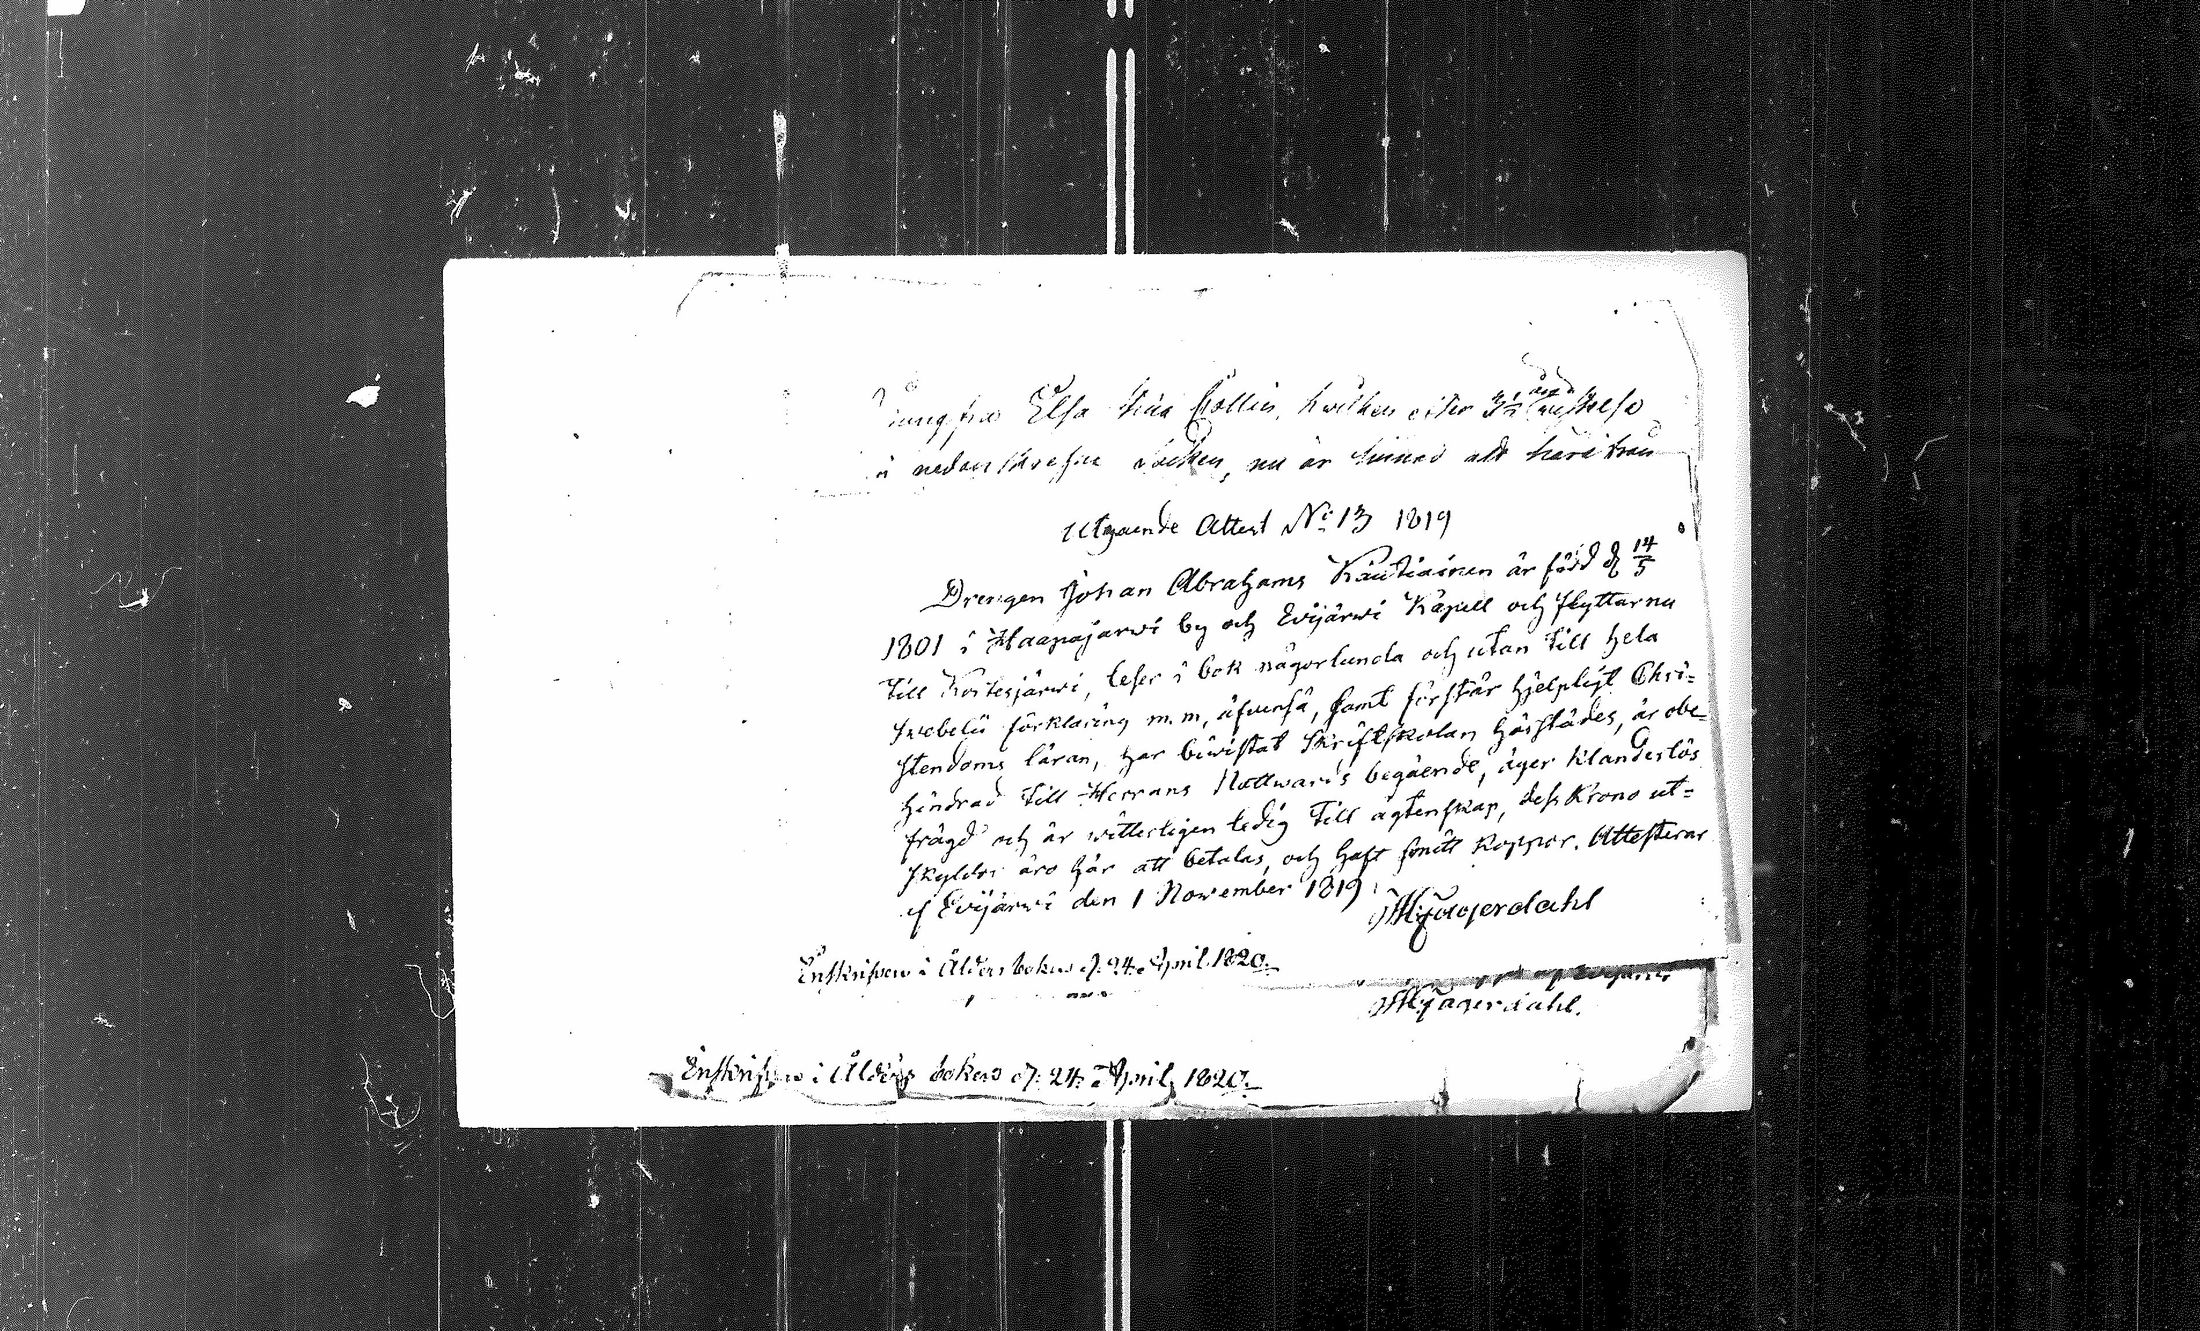 Jungfru Elsa Stina Collin, hwilken efter 3½ års wistelse
i nedanskrefne Socken, nu är sinnad att härifrån
Utgående Attest No 13 1819
Drengen Johan Abrahams Kautiainen är född d. 14/5
1801 i Haapajärwi by och Evijärwi Kapell och flyttar nu
till Kortesjärwi, leser i bok någorlunda och utan till hela
Swebelii förklaring m.m, äfvenså, samt förstår hjelpligt Chri=
stendoms läran, har biwistat Skriftskolan härstädes, är obe=
hindrad till Herrans Nattwards begående, äger klanderlös
frägd och är witterligen ledig till ägtenskap, dess Krono ut=
skylder äro här att betalas, och haft smitt koppor. Attesterar
af Evijärwi den 1 November 1819.
Jägerdahl
Inskrifven i Ålders boken d. 24 April 1820.
Jägerdahl.
Inskrifven i Ålders boken d. 24 April 1820.